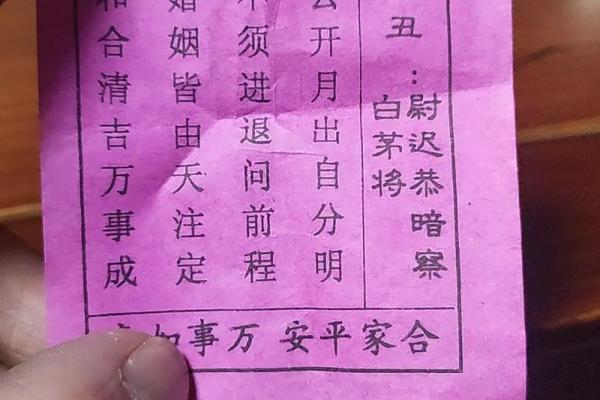 丑：
尉迟恭暗察
白茅将
云开月出自分明
不须进退问前程
婚姻皆由天注定
和合清吉万事成
合家平安 万事如